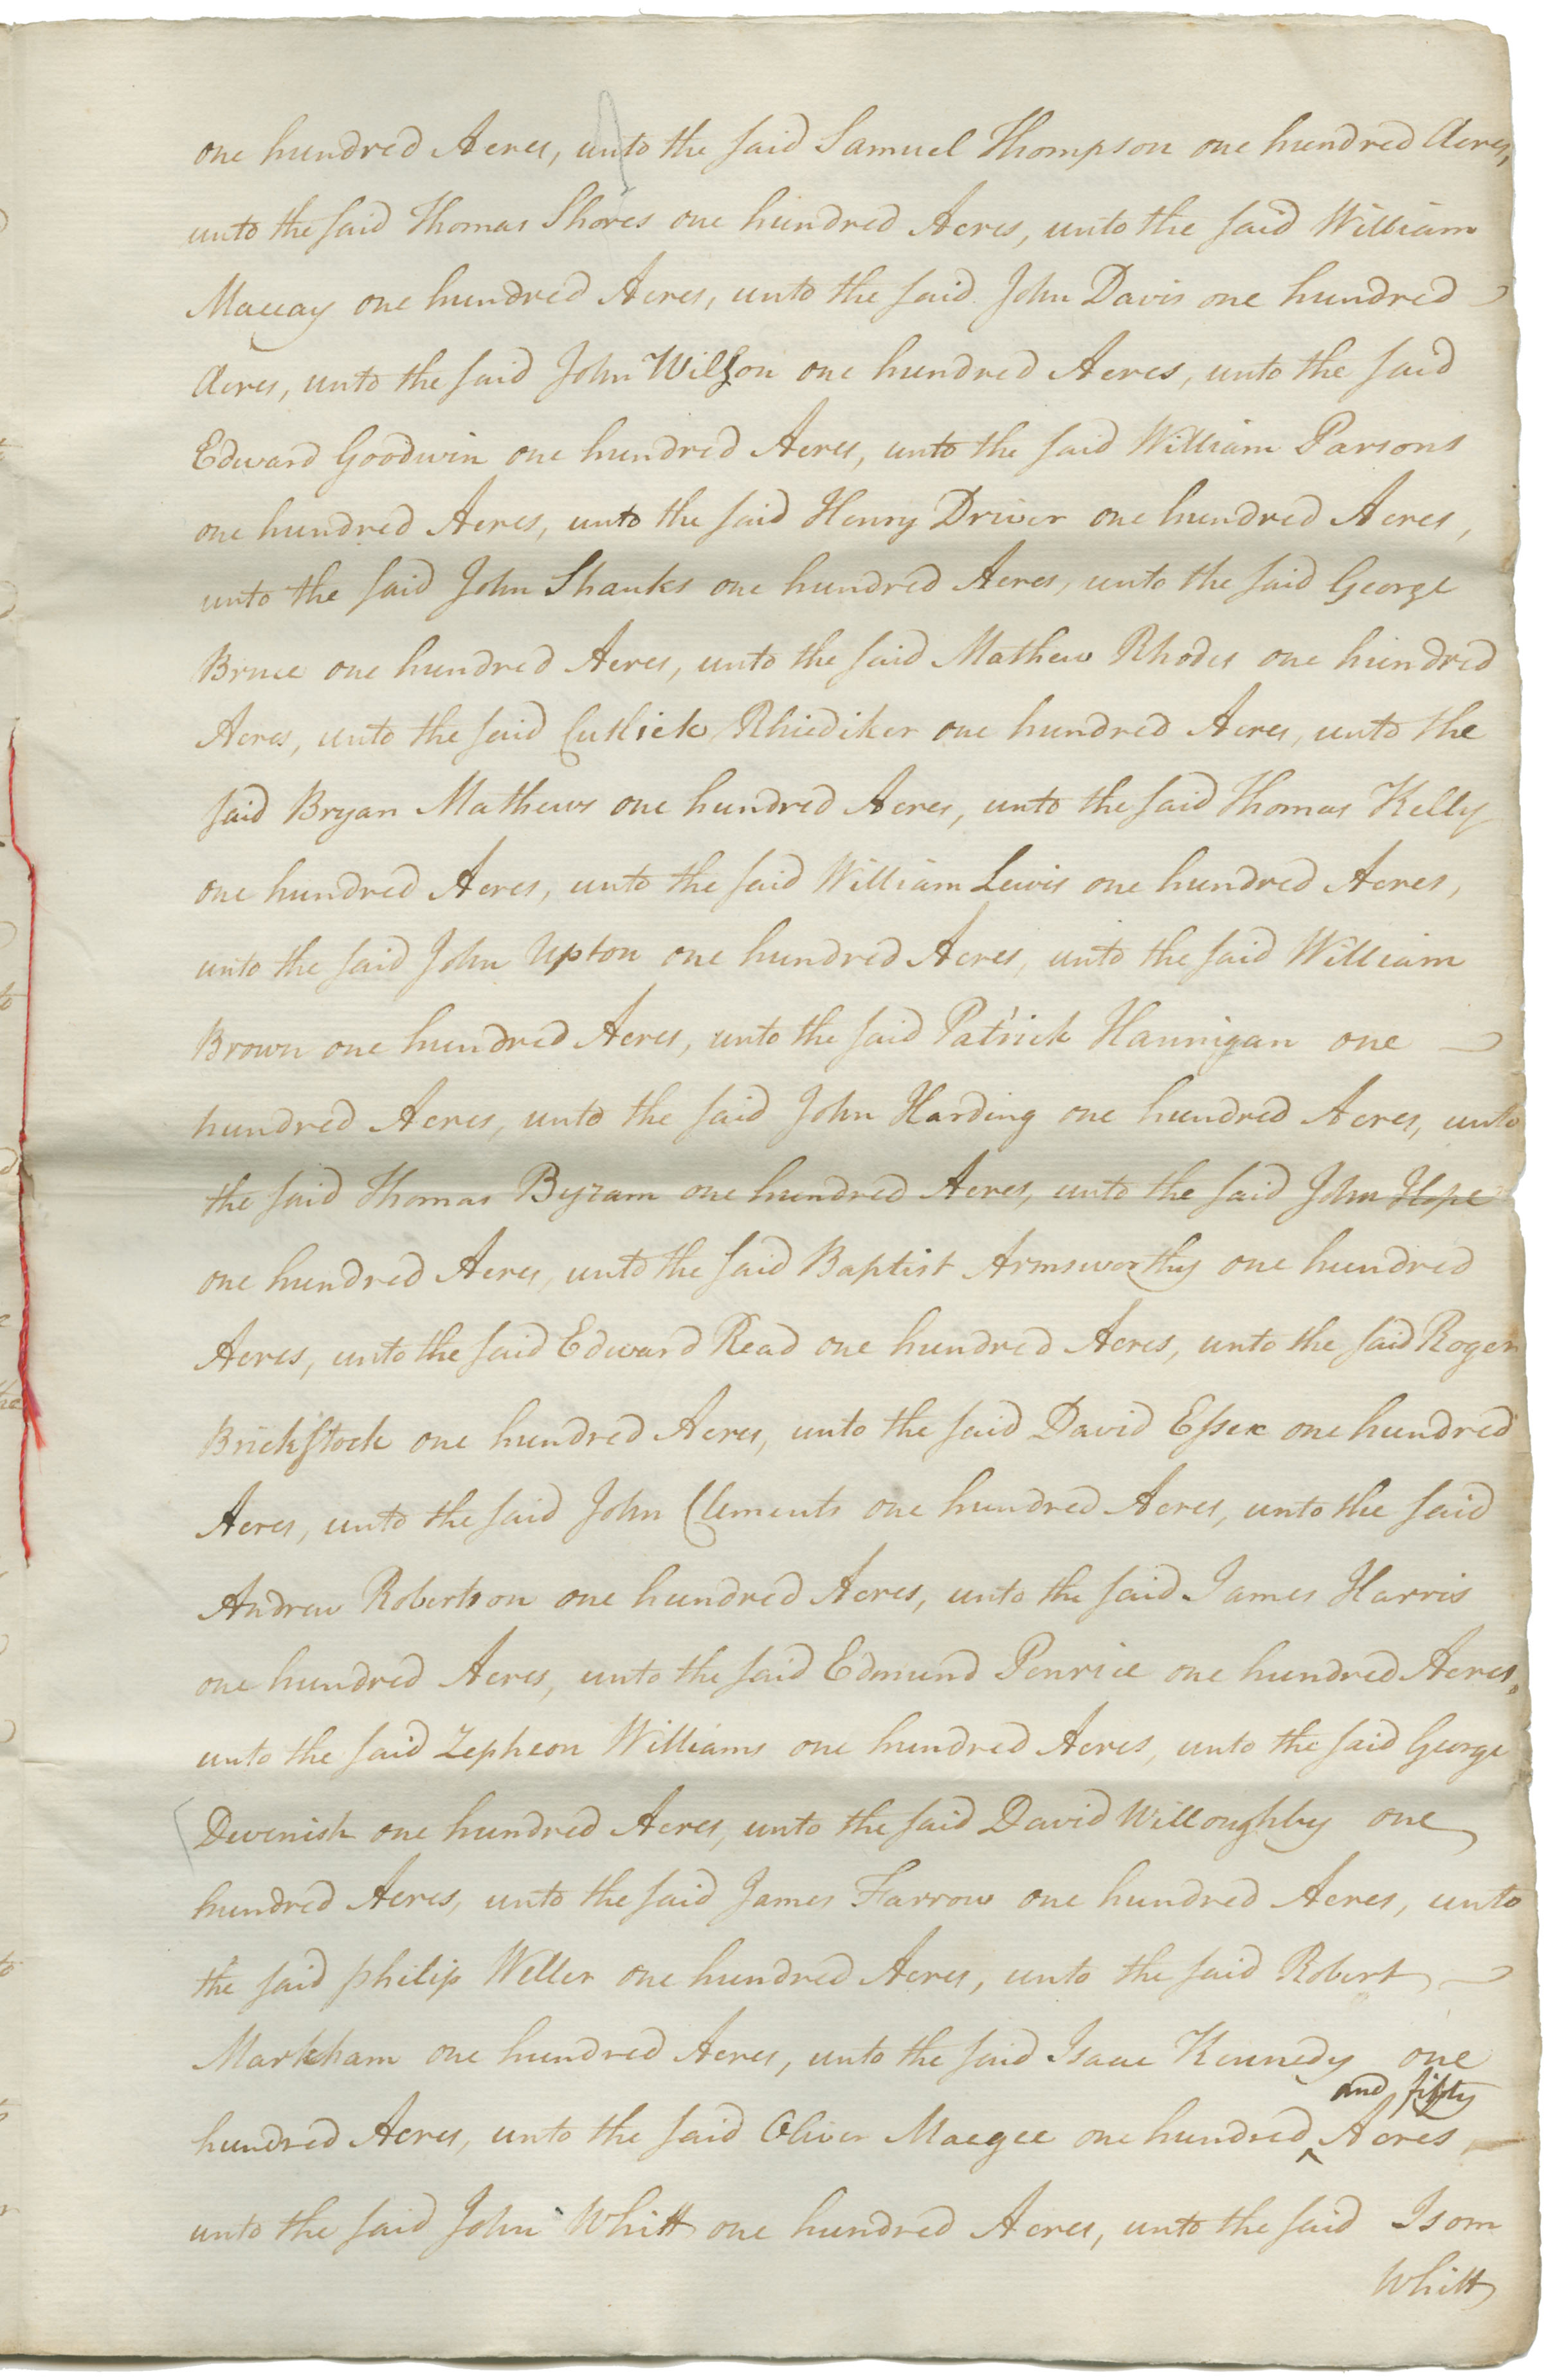 one hundred Acres, unto the said Samuel Thompson one hundred Acres,
unto the said Thomas Shores one hundred Acres, unto the said William
Maccay one hundred Acres, unto the said John Davis one hundred
Acres, unto the said John Wilson one hundred Acres, unto the said
Edward Goodwin one hundred Acres, unto the said William Parsons
one hundred Acres, unto the said Henry Driver one hundred Acres,
unto the said John Shanks one hundred Acres, unto the said George
Bruce one hundred Acres, unto the said Mathew Rhodes one hundred
Acres, unto the said Rhiediker one hundred Acres, unto the
said Bryan Mathews one hundred Acres, unto the said Thomas Kelly
one hundred Acres, unto the said William Lewis one hundred Acres,
unto the said John Upton one hundred Acres, unto the said William
Brown one hundred Acres, unto the said Patrick Hannigan one
hundred Acres, unto the said John Harding one hundred Acres, unto
the said Thomas Byram one hundred Acres, unto the said John Hope
one hundred Acres, unto the said Baptist Armsworthy one hundred
Acres, unto the said Edward Read one hundred Acres, unto the said Roger
Brickstock one hundred Acres, unto the said David Essex one hundred
Acres, unto the said John Clements one hundred Acres, unto the said
Andrew Robertson one hundred Acres, unto the said James Harris
one hundred Acres, unto the said Edmund Penrice one hundred Acres,
unto the said Zepheon Williams one hundred Acres, unto the said George
Devenish one hundred Acres, unto the said David Willoughby one
hundred Acres, unto the said James Farrow one hundred Acres, unto
the said philip Weller one hundred Acres, unto the said Robert
Markham one hundred Acres, unto the said Isaac Kennedy one
and fifty
hundred Acres, unto the said Oliver Maegee one hundred ^ Acres,
unto the said John Whitt one hundred Acres, unto the said Isom
Whitt